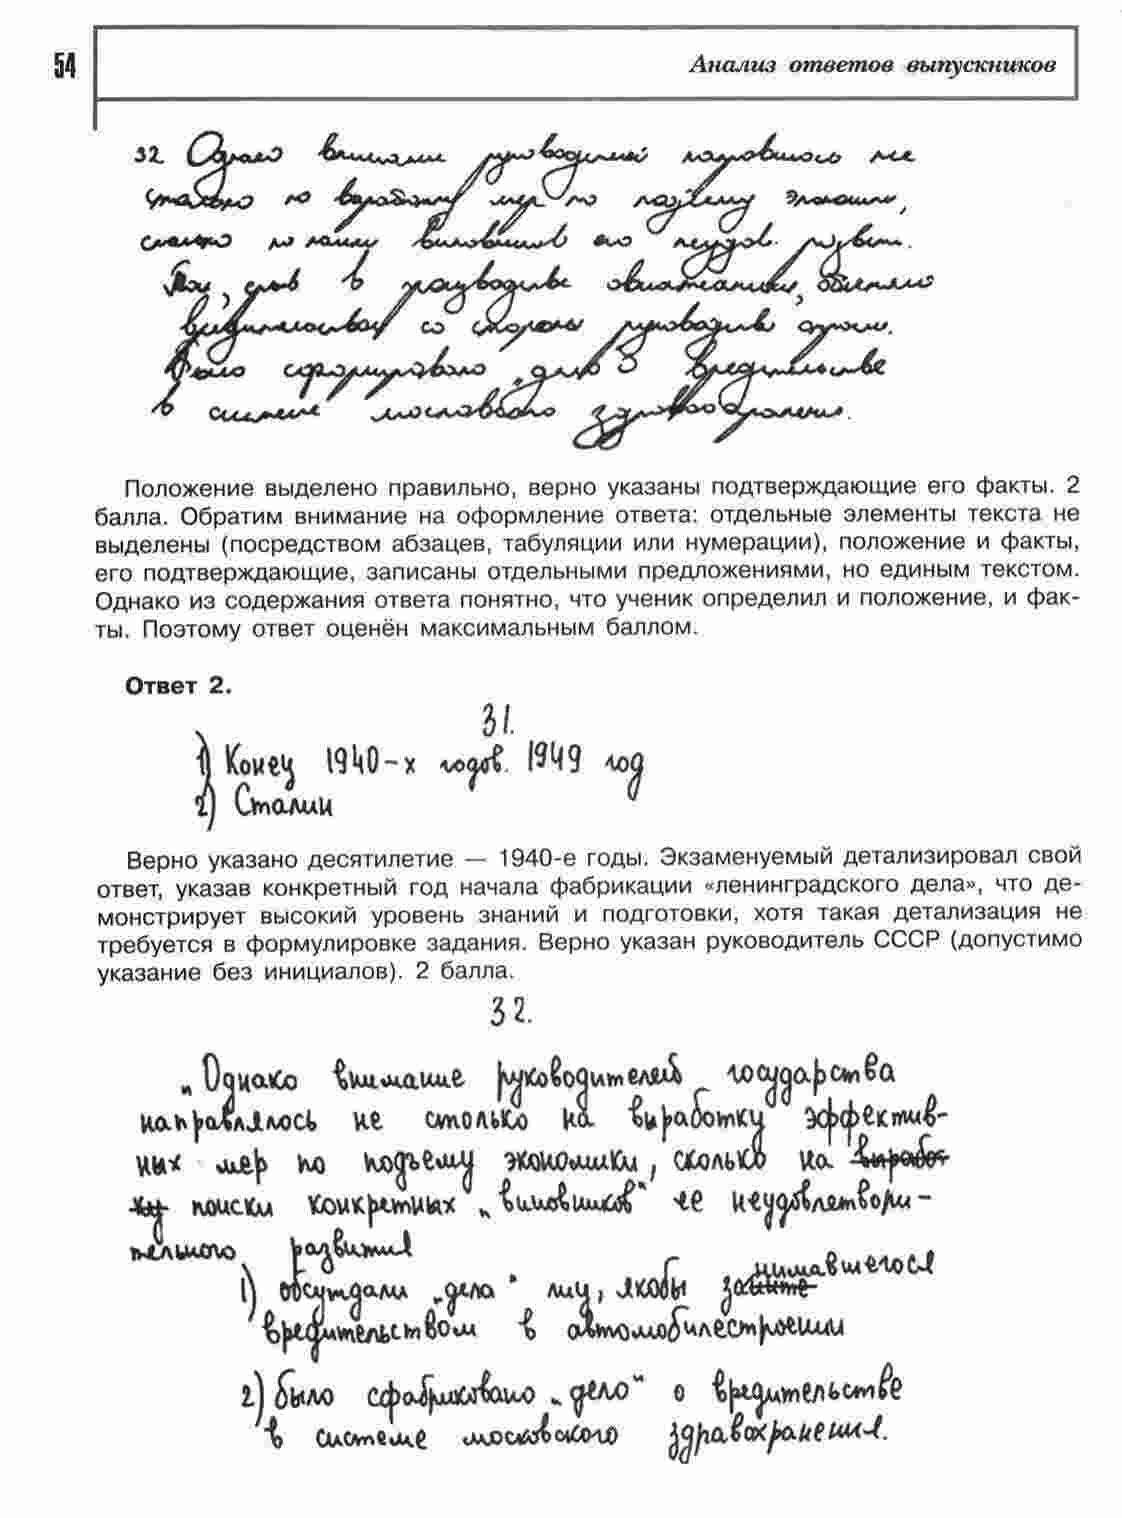 54
Анализ ответов выпускников
32 Однако внимание руководителей направлялось не
столько на выработку мер по подъему экономики,
сколько на поиск виновников его неудов. развит.
Так, срыв в производстве авиатехники, объясняли
вредительством со стороны руководства отрасли.
Было сформировано „дело" о вредительстве
в системе московского здравоохранения.
Положение выделено правильно, верно указаны подтверждающие его факты. 2
балла. Обратим внимание на оформление ответа: отдельные элементы текста не
выделены (посредством абзацев, табуляции или нумерации), положение и факты,
его подтверждающие, записаны отдельными предложениями, но единым текстом.
Однако из содержания ответа понятно, что ученик определил и положение, и фак-
ты. Поэтому ответ оценён максимальным баллом.
Ответ 2.
31.
1) Конец 1940-х годов. 1949 год
2) Сталин
Верно указано десятилетие — 1940-е годы. Экзаменуемый детализировал свой
ответ, указав конкретный год начала фабрикации «ленинградского дела», что де-
монстрирует высокий уровень знаний и подготовки, хотя такая детализация не
требуется в формулировке задания. Верно указан руководитель СССР (допустимо
указание без инициалов). 2 балла.
32.
„Однако внимание руководителей государства
направлялось не столько на выработку эффектив-
ных мер по подъему экономики, сколько на выработ
ку поиски конкретных „виновников" ее неудовлетвори-
тельного развития
1) обсуждали „дела" лиц, якобы занимавшегося
вредительством в автомобилестроении
2) было сфабриковано „дело" о вредительстве
в системе московского здравохранения.